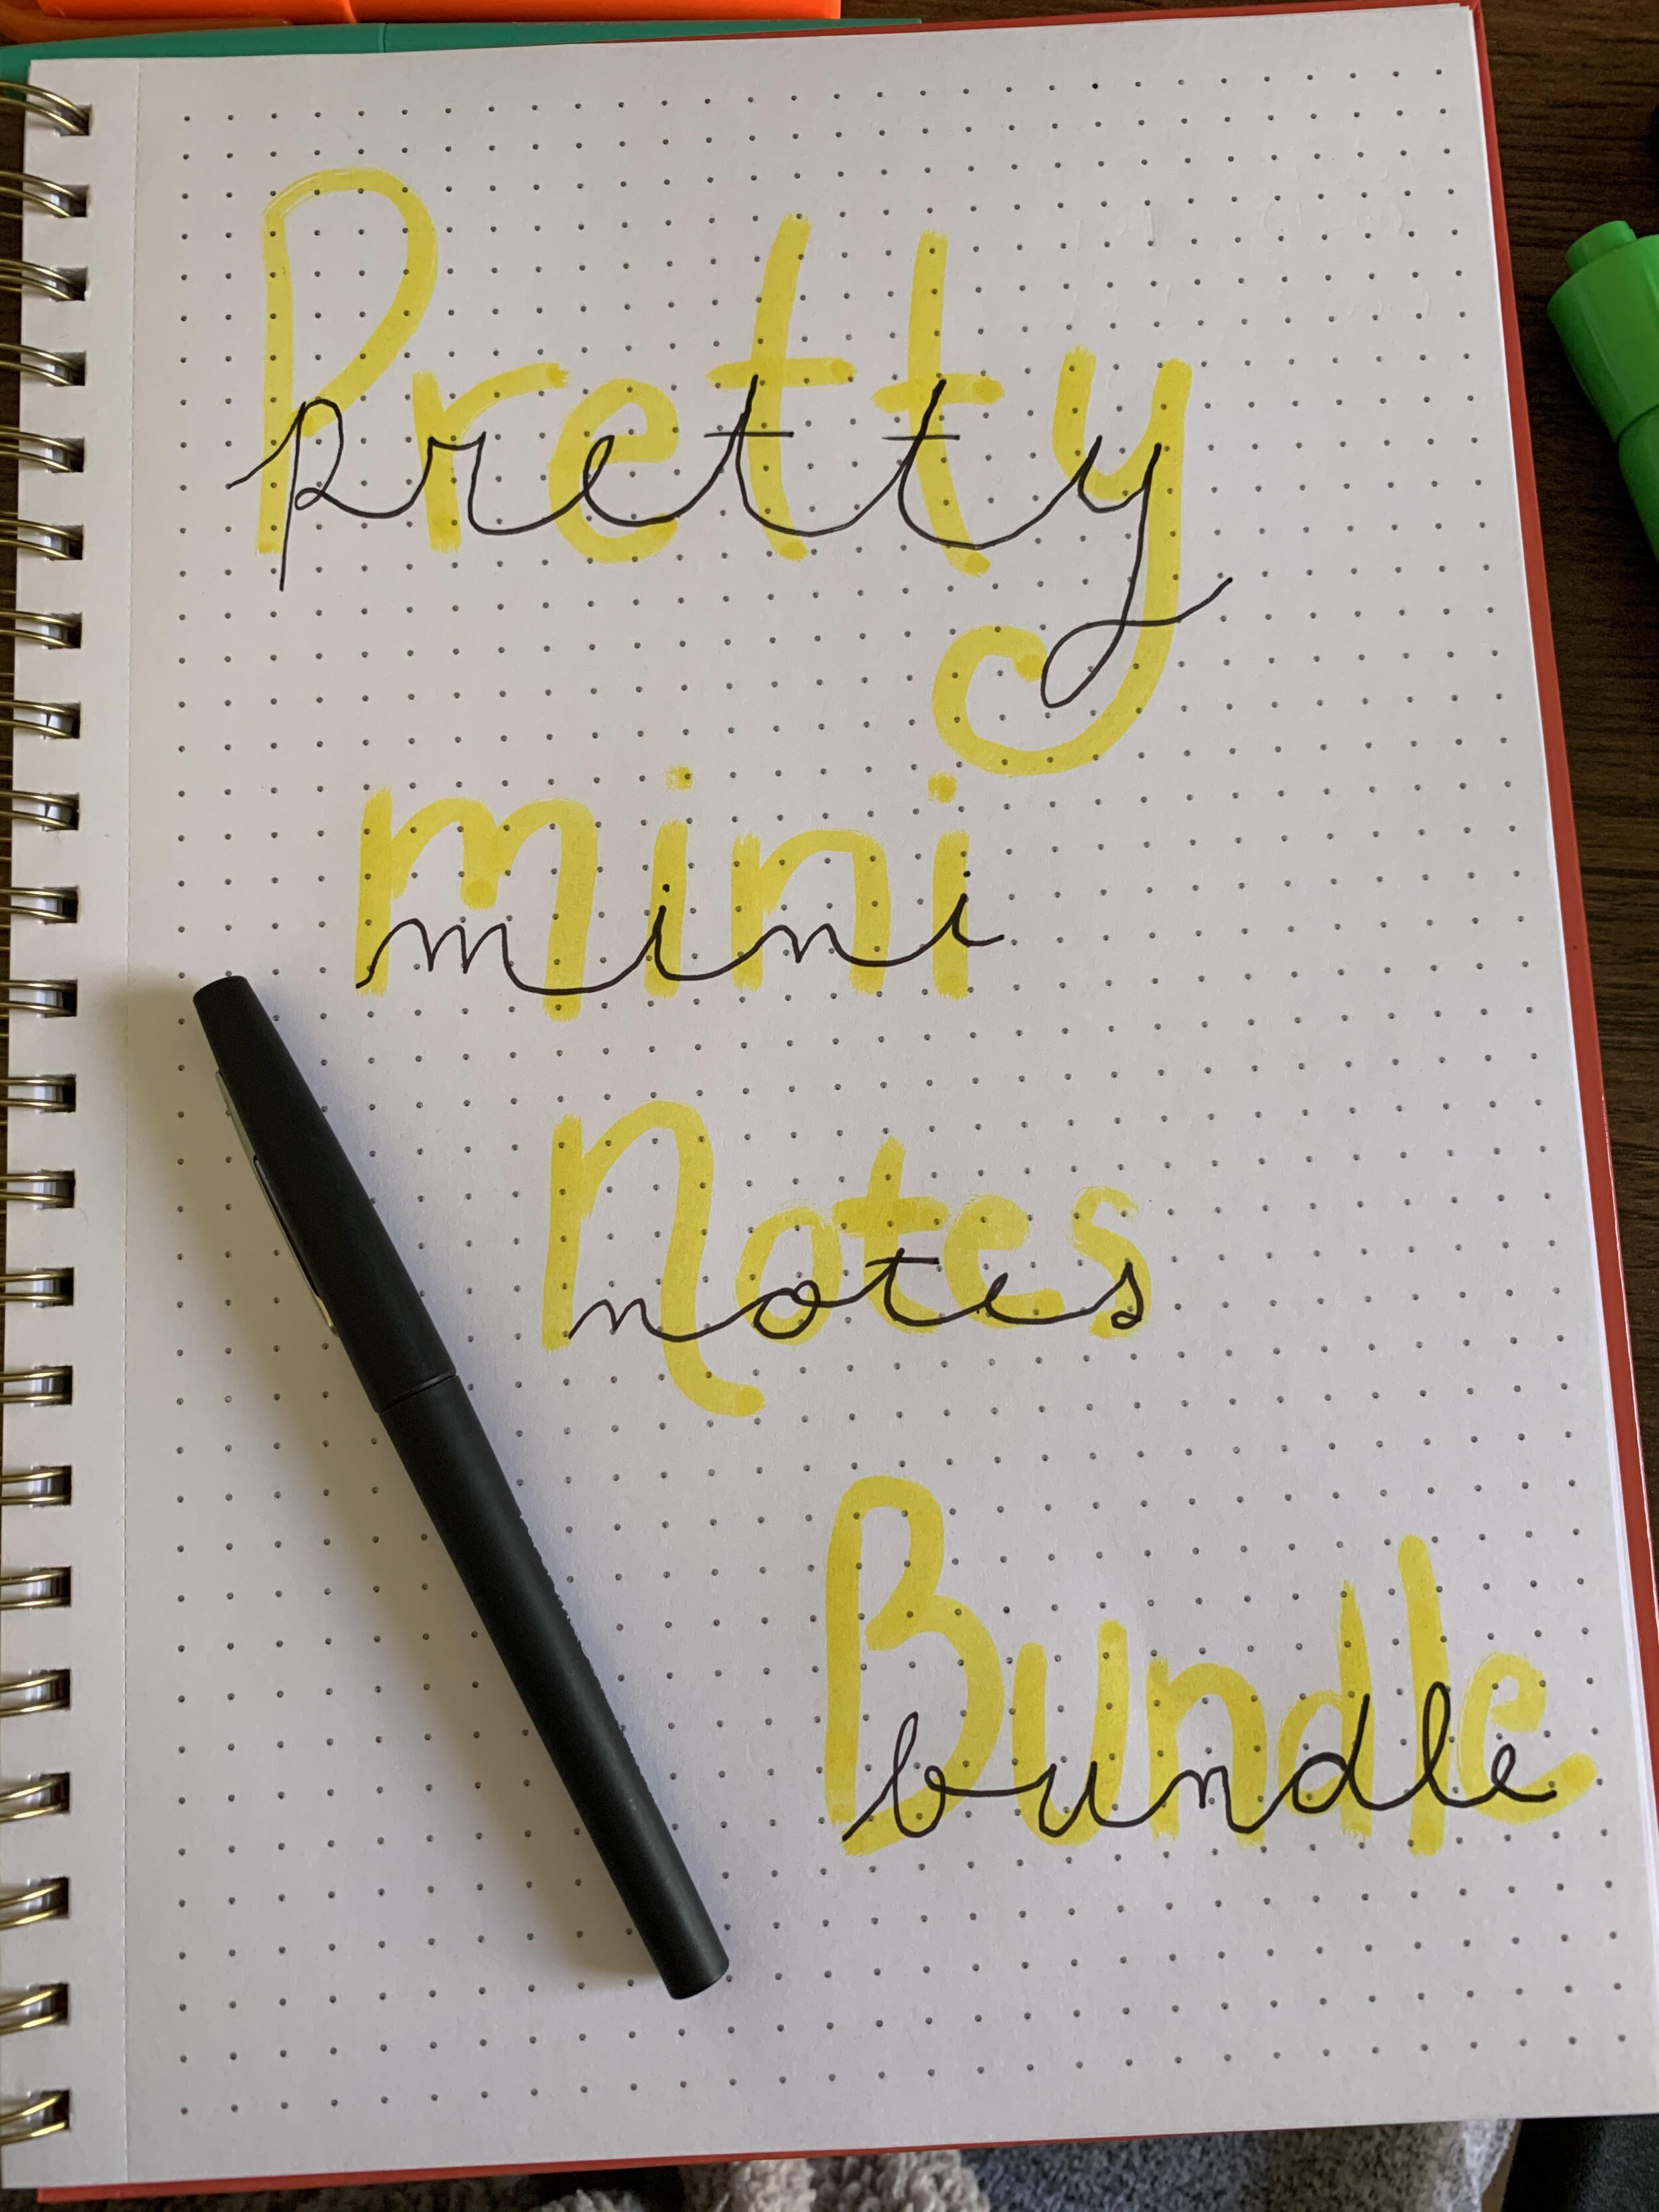 Pretty
pretty
mini
mini
Notes
notes
Bundle
bundle